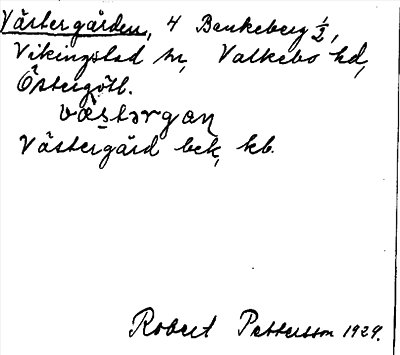 Västergården, 4 Bankeberg ½,
Vikingstad sn, Valkebo hd,
Östergötl.
västərgan
Västergård bek, kb.
Robert Pettersson 1929.